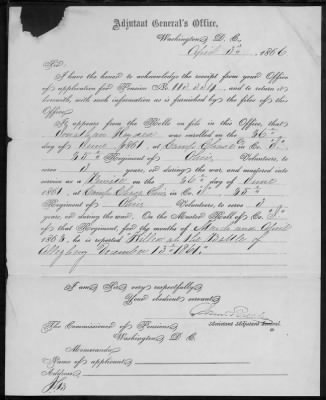 Adjutant General's Office,
Washington, D. C.
April 3d 1866
Sir:
I have the honor to acknowledge the receipt from your Office
of application for Pension No. 112.334, and to return it
herewith, with such information as is furnished by the files of
this Office.
It appears from the Rolls on file in this Office, that
Jonathan was enrolled on the 26th
day of June, 1861, at Camp Chase in Co.
25th Regiment of Ohio Volunteers, to
serve 3 years, or during the war, and mustered into
service as a Private on the 26th day of June
1861, at Camp Chase Ohio, in Co. 25th
Regiment of Ohio Volunteers, to serve 3
years, or during the war. On the Muster Roll of Co.
of that Regiment, for the months of March and April
186, he is reported "Killed at the Battle of
Allegheny December 13th 1861."
I am, Sir, very respectfully,
Your obedient servant,
Assistant Adjutant General.
The Commissioner of Pensions,
Washington, D. C.
Memoranda:
Name of applicant
Address